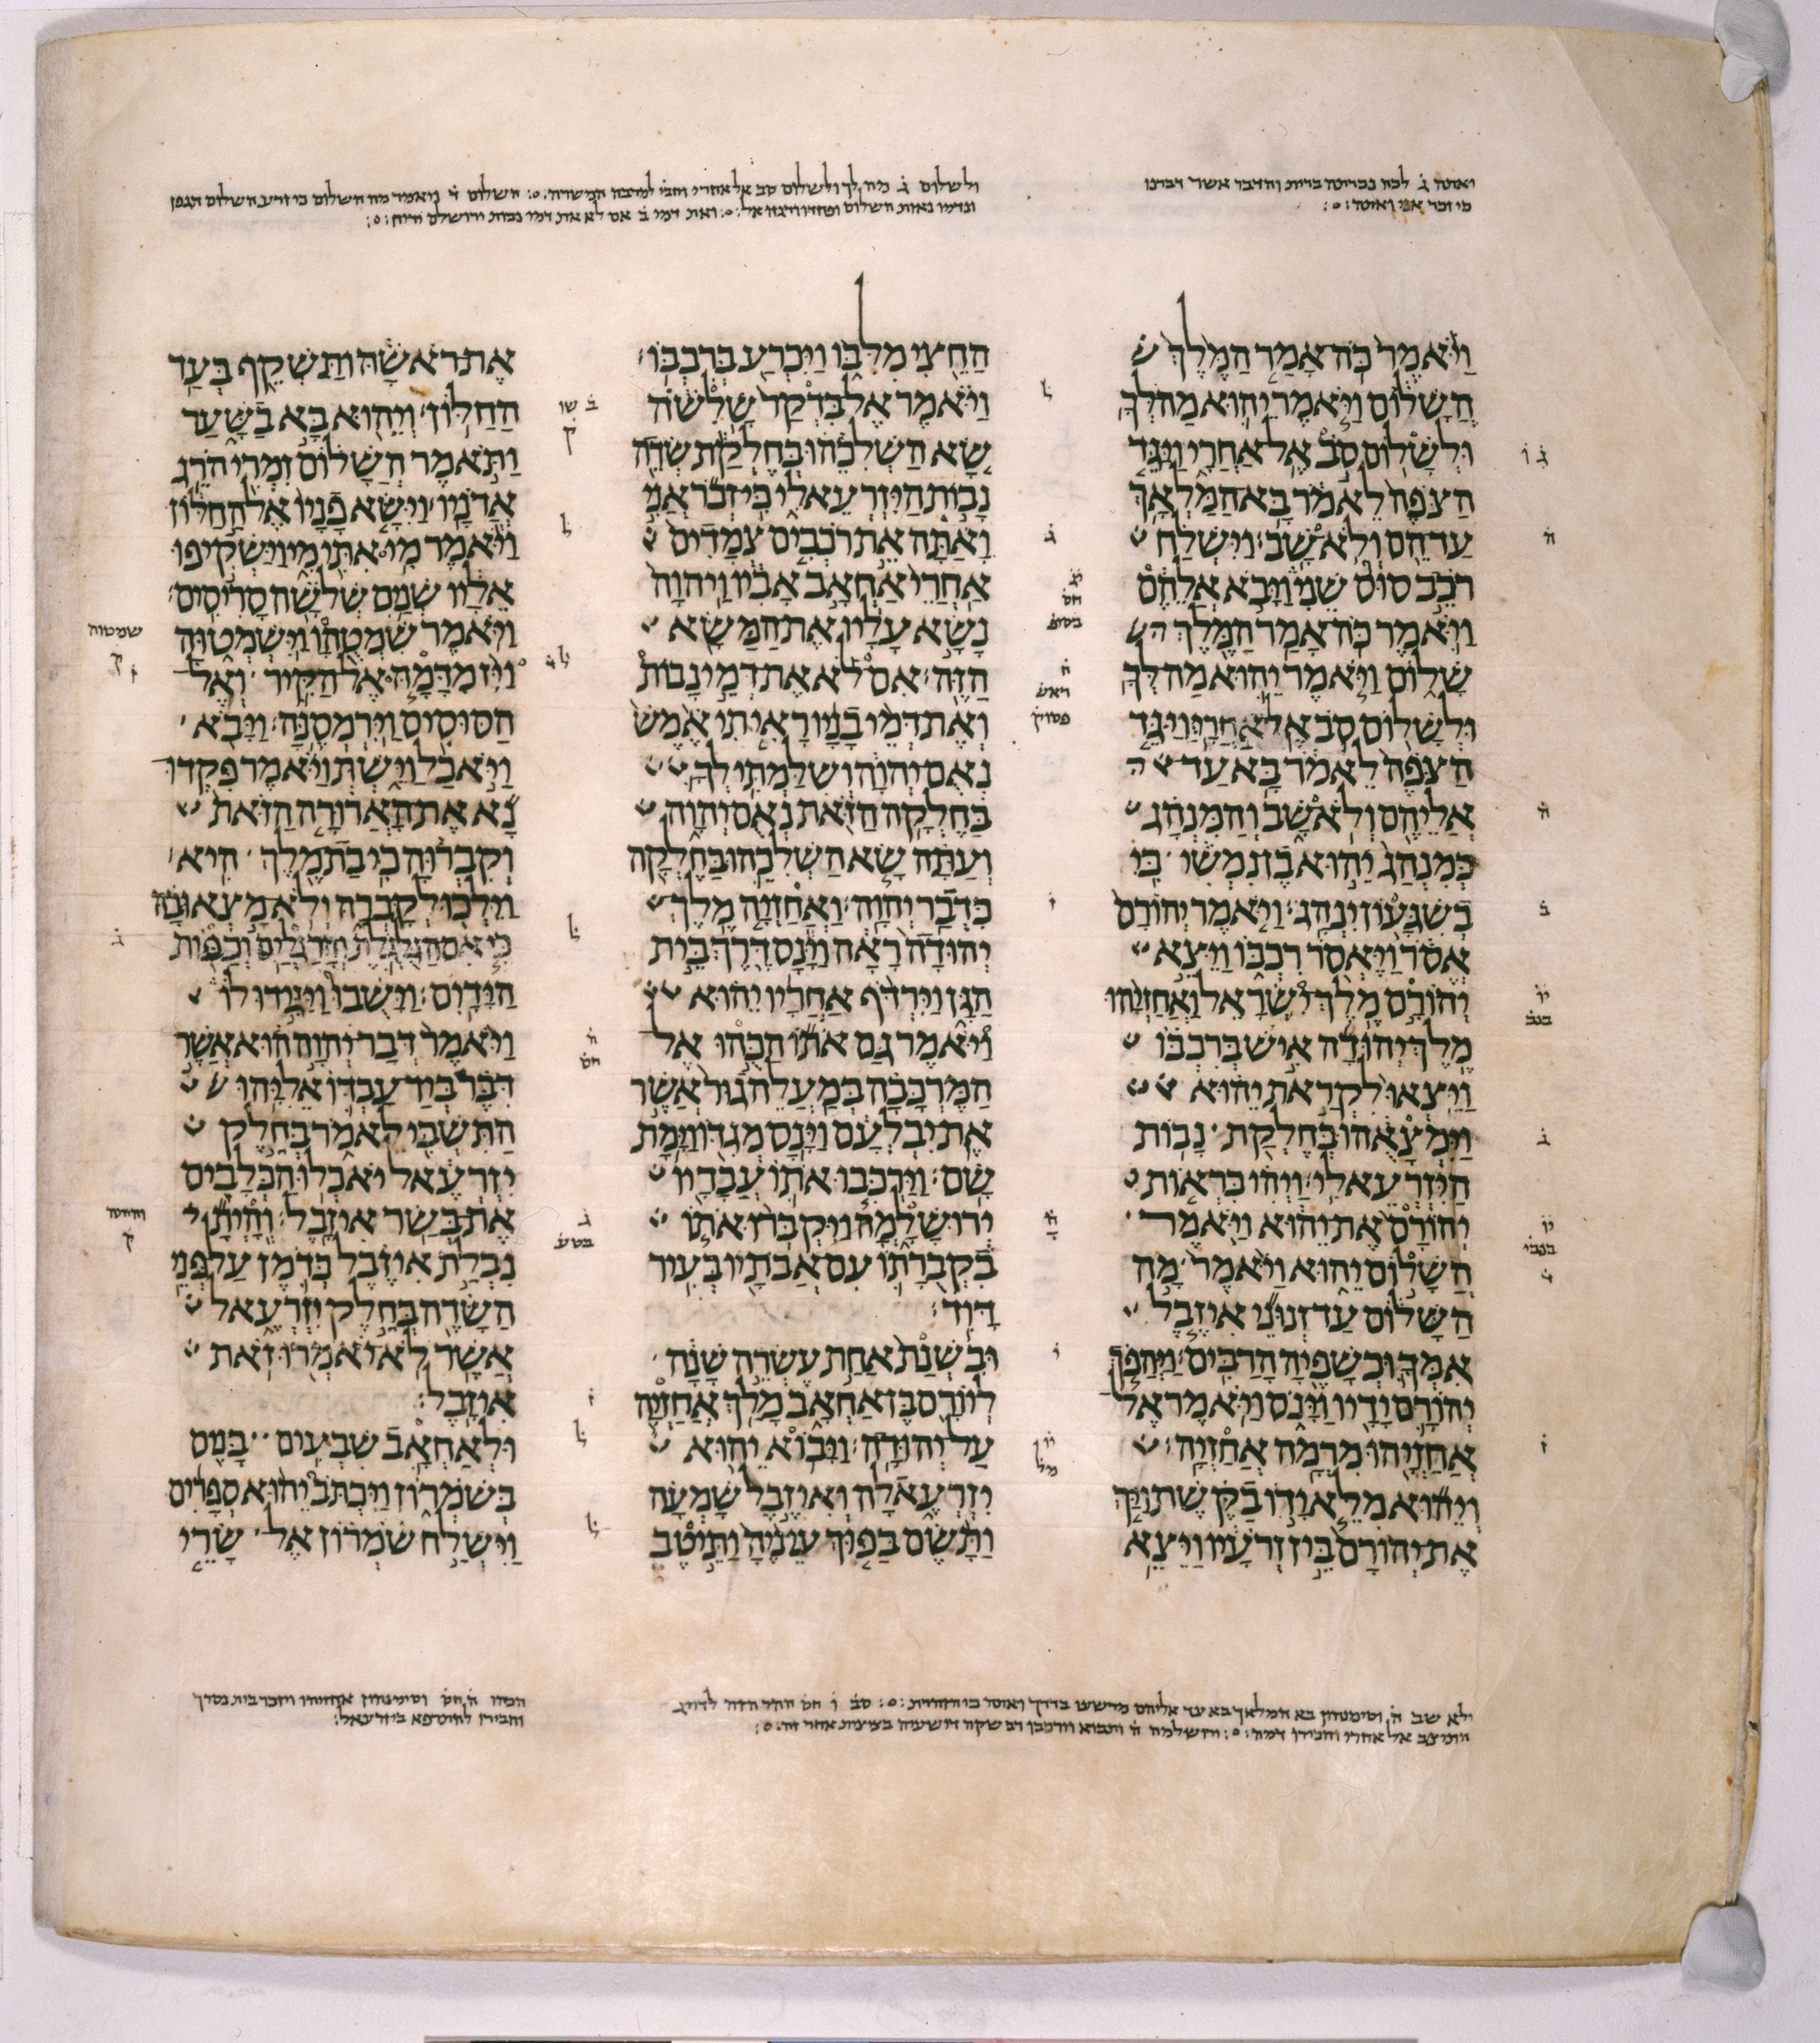 ואתה ג לכה נכרתה ברית והדבר אשר דברנו
כי זכר אני ואתה
ולשלום ג מה לך ולשלום סב אל אחרי
וַיֹּאמֶר כֹּה אָמַר הַמֶּלֶךְ
הֲשָׁלוֹם וַיֹּאמֶר יֵהוּא מַה לְּךָ
וּלְשָׁלוֹם סֹב אֶל אַחֲרָי וַיַּגֵּד
הַצֹּפֶה לֵאמֹר בָּא הַמַּלְאָךְ
עַד הֵם וְלֹא שָׁב׃ וַיִּשְׁלַח
רֹכֵב סוּס שֵׁנִי וַיָּבֹא אֲלֵהֶם
וַיֹּאמֶר כֹּה אָמַר הַמֶּלֶךְ
שָׁלוֹם וַיֹּאמֶר יֵהוּא מַה לְּךָ
וּלְשָׁלוֹם סֹב אֶל אַחֲרָי׃ וַיַּגֵּד
הַצֹּפֶה לֵאמֹר בָּא עַד
אֲלֵיהֶם וְלֹא שָׁב וְהַמִּנְהָג
כְּמִנְהַג יֵהוּא בֶן נִמְשִׁי כִּי
בְשִׁגָּעוֹן יִנְהָג׃ וַיֹּאמֶר יְהוֹרָם
אֱסֹר וַיֶּאְסֹר רִכְבּוֹ וַיֵּצֵא
יְהוֹרָם מֶלֶךְ יִשְׂרָאֵל וַאֲחַזְיָהוּ
מֶלֶךְ יְהוּדָה אִישׁ בְּרִכְבּוֹ
וַיֵּצְאוּ לִקְרַאת יֵהוּא
וַיִּמְצָאֻהוּ בְּחֶלְקַת נָבוֹת
הַיִּזְרְעֵאלִי׃ וַיְהִי כִּרְאוֹת
יְהוֹרָם אֶת יֵהוּא וַיֹּאמֶר
הֲשָׁלוֹם יֵהוּא וַיֹּאמֶר מָה
הַשָּׁלוֹם עַד זְנוּנֵי אִיזֶבֶל
אִמְּךָ וּכְשָׁפֶיהָ הָרַבִּים׃ וַיַּהֲפֹךְ
יְהוֹרָם יָדָיו וַיָּנֹס וַיֹּאמֶר אֶל
אֲחַזְיָהוּ מִרְמָה אֲחַזְיָה׃
וְיֵהוּא מִלֵּא יָדוֹ בַקֶּשֶׁת וַיַּךְ
אֶת יְהוֹרָם בֵּין זְרֹעָיו וַיֵּצֵא
הַחֵצִי מִלִּבּוֹ וַיִּכְרַע בְּרִכְבּוֹ׃
וַיֹּאמֶר אֶל בִּדְקַר שָׁלִשֹׁה
שָׂא הַשְׁלִכֵהוּ בְּחֶלְקַת שְׂדֵה
נָבוֹת הַיִּזְרְעֵאלִי כִּי זְכֹר אֲנִי
וָאַתָּה אֵת רֹכְבִים צְמָדִים
אַחֲרֵי אַחְאָב אָבִיו וַיהוָה
נָשָׂא עָלָיו אֶת הַמַּשָּׂא
הַזֶּה׃ אִם לֹא אֶת דְּמֵי נָבוֹת
וְאֶת דְּמֵי בָנָיו רָאִיתִי אֶמֶשׁ
נְאֻם יְהוָה וְשִׁלַּמְתִּי לְךָ
בַּחֶלְקָה הַזֹּאת נְאֻם יְהוָה
וְעַתָּה שָׂא הַשְׁלִכֵהוּ בַּחֶלְקָה
כִּדְבַר יְהוָה׃ וַאֲחַזְיָה מֶלֶךְ
יְהוּדָה רָאָה וַיָּנָס דֶּרֶךְ בֵּית
הַגָּן וַיִּרְדֹּף אַחֲרָיו יֵהוּא
וַיֹּאמֶר גַּם אֹתוֹ הַכֻּהוּ אֶל
הַמֶּרְכָּבָה בְּמַעֲלֵה גוּר אֲשֶׁר
אֶת יִבְלְעָם וַיָּנָס מְגִדּוֹ וַיָּמָת
שָׁם׃ וַיַּרְכִּבוּ אֹתוֹ עֲבָדָיו
יְרוּשָׁלְָמָה וַיִּקְבְּרוּ אֹתוֹ
בִקְבֻרָתוֹ עִם אֲבֹתָיו בְּעִיר
דָּוִד׃
וּבִשְׁנַת אַחַת עֶשְׂרֵה שָׁנָה
לְיוֹרָם בֶּן אַחְאָב מָלַךְ אֲחַזְיָה
עַל יְהוּדָה׃ וַיָּבוֹא יֵהוּא
יִזְרְעֶאלָה וְאִיזֶבֶל שָׁמְעָה
וַתָּשֶׂם בַּפּוּךְ עֵינֶיהָ וַתֵּיטֶב
אֶת רֹאשָׁהּ וַתַּשְׁקֵף בְּעַד
הַחַלּוֹן׃ וְיֵהוּא בָּא בַשָּׁעַר
וַתֹּאמֶר הֲשָׁלוֹם זִמְרִי הֹרֵג
אֲדֹנָיו׃ וַיִּשָּׂא פָנָיו אֶל הַחַלּוֹן
וַיֹּאמֶר מִי אִתִּי מִי וַיַּשְׁקִיפוּ
אֵלָיו שְׁנַיִם שְׁלֹשָׁה סָרִיסִים׃
וַיֹּאמֶר שִׁמְטֻהוּ וַיִּשְׁמְטוּהָ
וַיִּז מִדָּמָהּ אֶל הַקִּיר וְאֶל
הַסּוּסִים וַיִּרְמְסֶנָּה׃ וַיָּבֹא
וַיֹּאכַל וַיֵּשְׁתְּ וַיֹּאמֶר פִּקְדוּ
נָא אֶת הָאֲרוּרָה הַזֹּאת
וְקִבְרוּהָ כִּי בַת מֶלֶךְ הִיא׃
וַיֵּלְכוּ לְקָבְרָהּ וְלֹא מָצְאוּ בָהּ
כִּי אִם הַגֻּלְגֹּלֶת וְהָרַגְלַיִם וְכַפּוֹת
הַיָּדָיִם׃ וַיָּשֻׁבוּ וַיַּגִּידוּ לוֹ
וַיֹּאמֶר דְּבַר יְהוָה הוּא אֲשֶׁר
דִּבֶּר בְּיַד עַבְדּוֹ אֵלִיָּהוּ
הַתִּשְׁבִּי לֵאמֹר בְּחֵלֶק
יִזְרְעֶאל יֹאכְלוּ הַכְּלָבִים
אֶת בְּשַׂר אִיזָבֶל׃ וְהָיְתָ
נִבְלַת אִיזֶבֶל כְּדֹמֶן עַל פְּנֵי
הַשָּׂדֶה בְּחֵלֶק יִזְרְעֶאל
אֲשֶׁר לֹא יֹאמְרוּ זֹאת
אִיזָבֶל׃
וּלְאַחְאָב שִׁבְעִים בָּנִים
בְּשֹׁמְרוֹן וַיִּכְתֹּב יֵהוּא סְפָרִים
וַיִּשְׁלַח שֹׁמְרוֹן אֶל שָׂרֵי